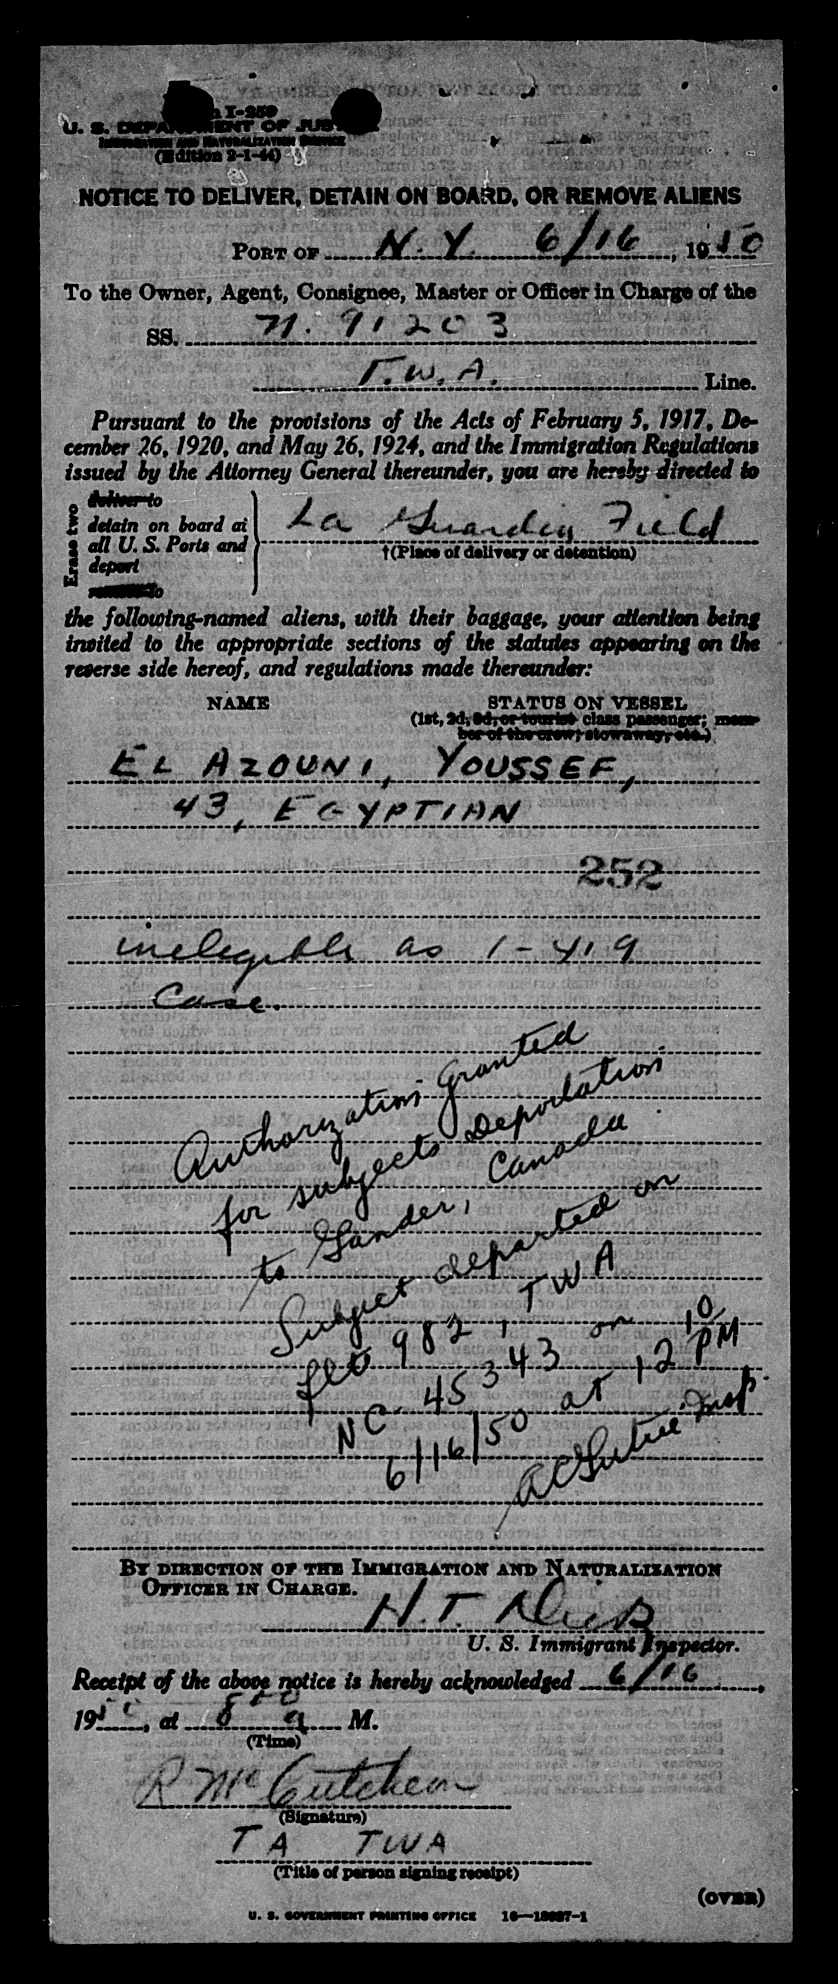 I-259
U. S. DEPARTMENT OF JUSTICE
IMMIGRATION AND NATURALIZATION SERVICE
(Edition 2-1-44)
NOTICE TO DELIVER, DETAIN ON BOARD, OR REMOVE ALIENS
PORT OF N. Y. 6/16, 1950
To the Owner, Agent, Consignee, Master or Officer in Charge of the
SS. N. 91203
T.W.A. Line.
Pursuant to the provisions of the Acts of February 5, 1917, De-
cember 26, 1920, and May 26, 1924, and the Immigration Regulations
issued by the Attorney General thereunder, you are hereby directed to
Erase two
deliver to
detain on board at
all U. S. Ports and
deport
remove to
La Guardia Field
†(Place of delivery or detention)
the following-named aliens, with their baggage, your attention being
invited to the appropriate sections of the statutes appearing on the
reverse side hereof, and regulations made thereunder:
NAME STATUS ON VESSEL
(1st, 2d, 3d, or tourist class passenger; mem-
ber of the crew; stowaway, etc.)
EL AZOUNI, YOUSSEF,
43, EGYPTIAN
252
inelegible as 1-419
Case.
Authorization granted
for subjects Deportation
to Gander, Canada.
Subject departed on
flt 982, TWA
NC 45343 on
6/16/50 at 12 10 PM
Insp.
BY DIRECTION OF THE IMMIGRATION AND NATURALIZATION
OFFICER IN CHARGE.
H. T.
U. S. Immigrant Inspector.
Receipt of the above notice is hereby acknowledged 6/16,
1950, at M.
(Time)
R McCutcheon
(Signature)
TA TWA
(Title of person signing receipt)
(OVER)
U. S. GOVERNMENT PRINTING OFFICE